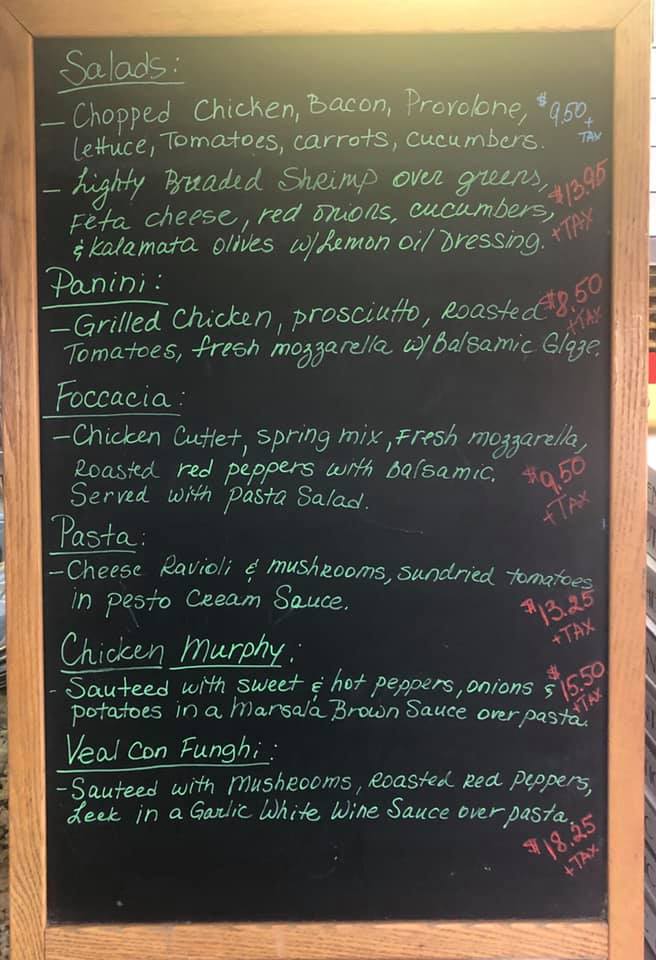 Salads:
- Chopped Chicken, Bacon, Provolone, $9.50 + TAX
lettuce, Tomatoes, carrots, cucumbers.
- Lighty Breaded Shrimp over greens, $13.95 + TAX
Feta cheese, red onions, cucumbers,
& kalamata olives w/Lemon oil Dressing.
Panini:
- Grilled Chicken, prosciutto, Roasted $8.50 + TAX
Tomatoes, fresh mozzarella w/Balsamic Glaze.
Foccacia:
- Chicken Cutlet, spring mix, Fresh mozzarella,
Roasted red peppers with Balsamic. $9.50 + TAX
Served with Pasta Salad.
Pasta:
- Cheese Ravioli & mushrooms, sundried tomatoes
in pesto Cream Sauce. $13.25 + TAX
Chicken Murphy:
- Sauteed with sweet & hot peppers, onions & $15.50 + TAX
potatoes in a Marsala Brown Sauce over pasta.
Veal Con Funghi:
- Sauteed with Mushrooms, Roasted Red Peppers,
Leek in a Garlic White Wine Sauce over pasta.
$18.25 + TAX